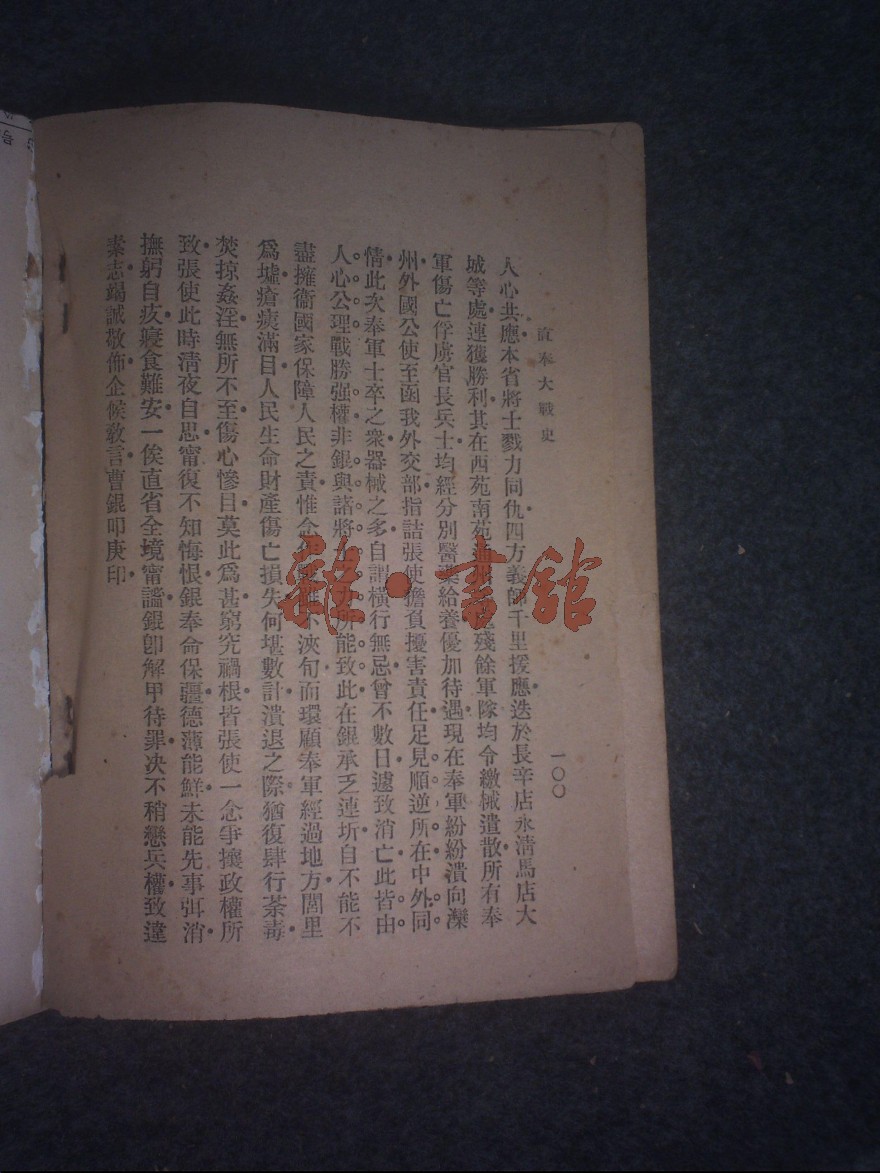 直奉大戰史
一〇〇
人心共應本省將士戮力同仇四方義師千里援應迭於長辛店永清馬店大
城等處連獲勝利其在西苑南苑通州 殘餘軍隊均令繳械遣散所有奉
軍傷亡俘虜官長兵士均經分別醫藥給養優加待遇現在奉軍紛紛潰向灤
州外國公使至函我外交部指詰張使擔負擾害責任足見順逆所在中外同
情此次奉軍士卒之衆器械之多自謂橫行無忌曾不數日遽致消亡此皆由
人心公理戰勝强權非錕與諸將士之力所能致此在錕承乏連圻自不能不
盡擁衞國家保障人民之責惟念 不浹旬而環顧奉軍經過地方閭里
爲墟瘡痍滿目人民生命財產傷亡損失何堪數計潰退之際猶復肆行荼毒
焚掠姦淫無所不至傷心慘目莫此爲甚窮究禍根皆張使一念爭攘政權所
致張使此時清夜自思甯復不知悔恨錕奉命保疆德薄能鮮未能先事弭消
撫躬自疚寢食難安一俟直省全境甯謐錕卽解甲待罪决不稍戀兵權致違
素志竭誠敬佈企候敎言曹錕叩庚印
雜·書館